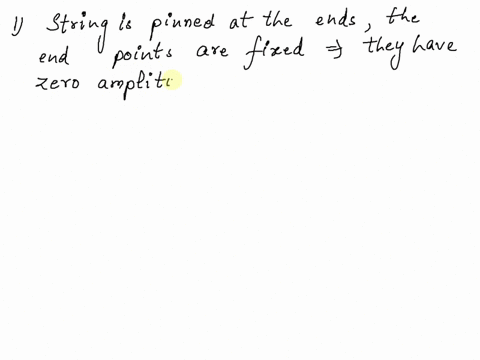 1) String is pinned at the ends, the
end points are fixed ⇒ they have
zero amplit